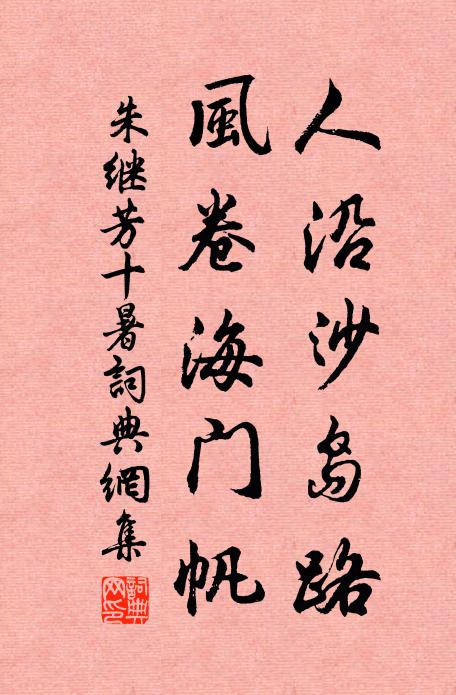 人沿沙岛路
風卷海门帆
朱继芳十暑詞典網集
詞典网印